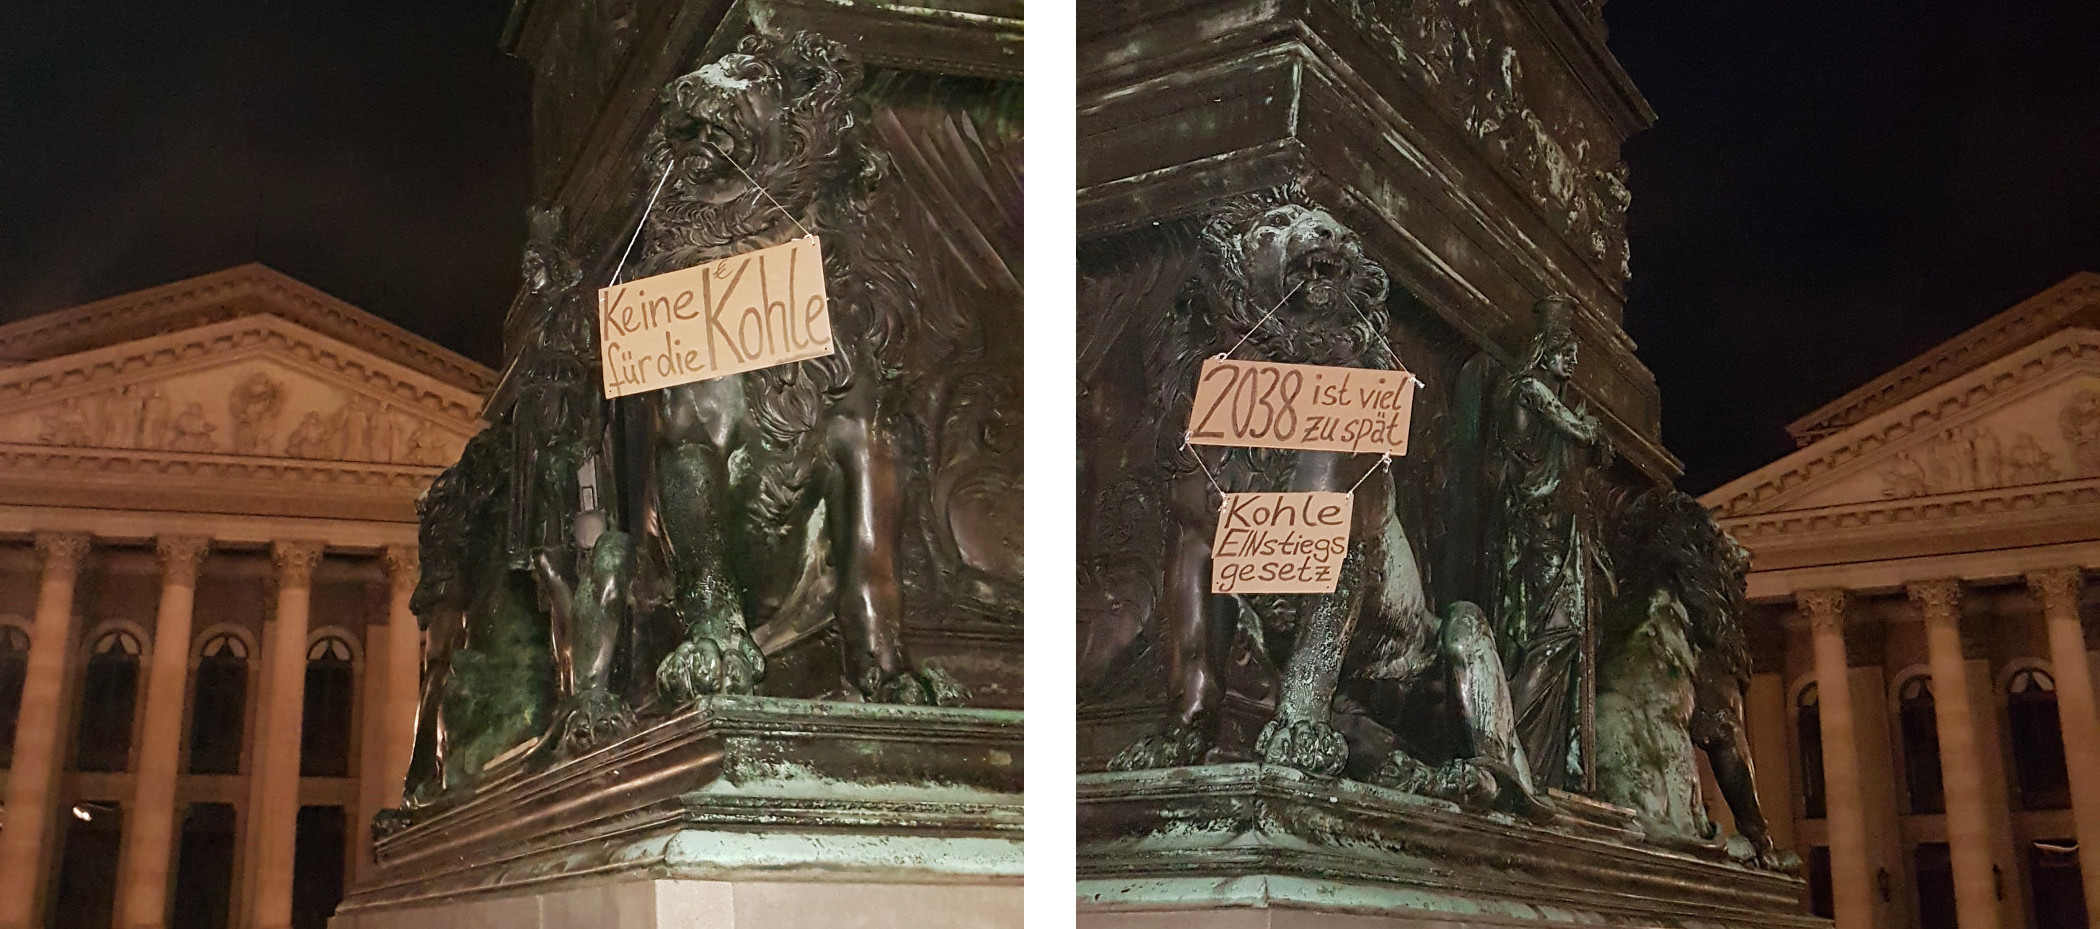 Keine
für die Kohle
2038 ist viel
zu spät
Kohle
EINstiegs
gesetz